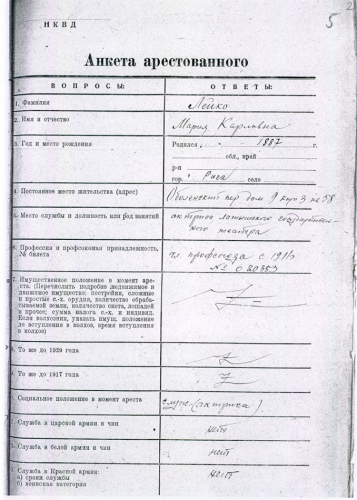 5
НКВД
Анкета арестованного
ВОПРОСЫ: ОТВЕТЫ:
1. Фамилия Лейко
2. Имя и отчество Мария Карловна
3. Год и место рождения Родился 1887 г.
обл., край
р-н
гор. Рига село
4. Постоянное место жительства (адрес) Оболенский пер дом 9 корп 3 кв 58
5. Место службы и должность или род занятий актриса латышского государствен-
ного театра
6. Профессия и профсоюзная принадлежность, чл. профсоюза с
№ билета № 020353
7. Имущественное положение в момент аре-
ста. (Перечислить подробно недвижимое и
движимое имущество: постройки, сложные
и простые с.-х. орудия, количество обраба-
тываемой земли, количество скота, лошадей
и прочее; сумма налога с.-х. и индивид.
Если колхозник, указать имущ. положение
до вступления в колхоз, время вступления
в колхоз)
8. То же до 1929 года
9. То же до 1917 года
10. Социальное положение в момент ареста служ. (актриса)
11. Служба в царской армии и чин нет
12. Служба в белой армии и чин нет
13. Служба в Красной армии: нет
а) сроки службы
б) воинская категория